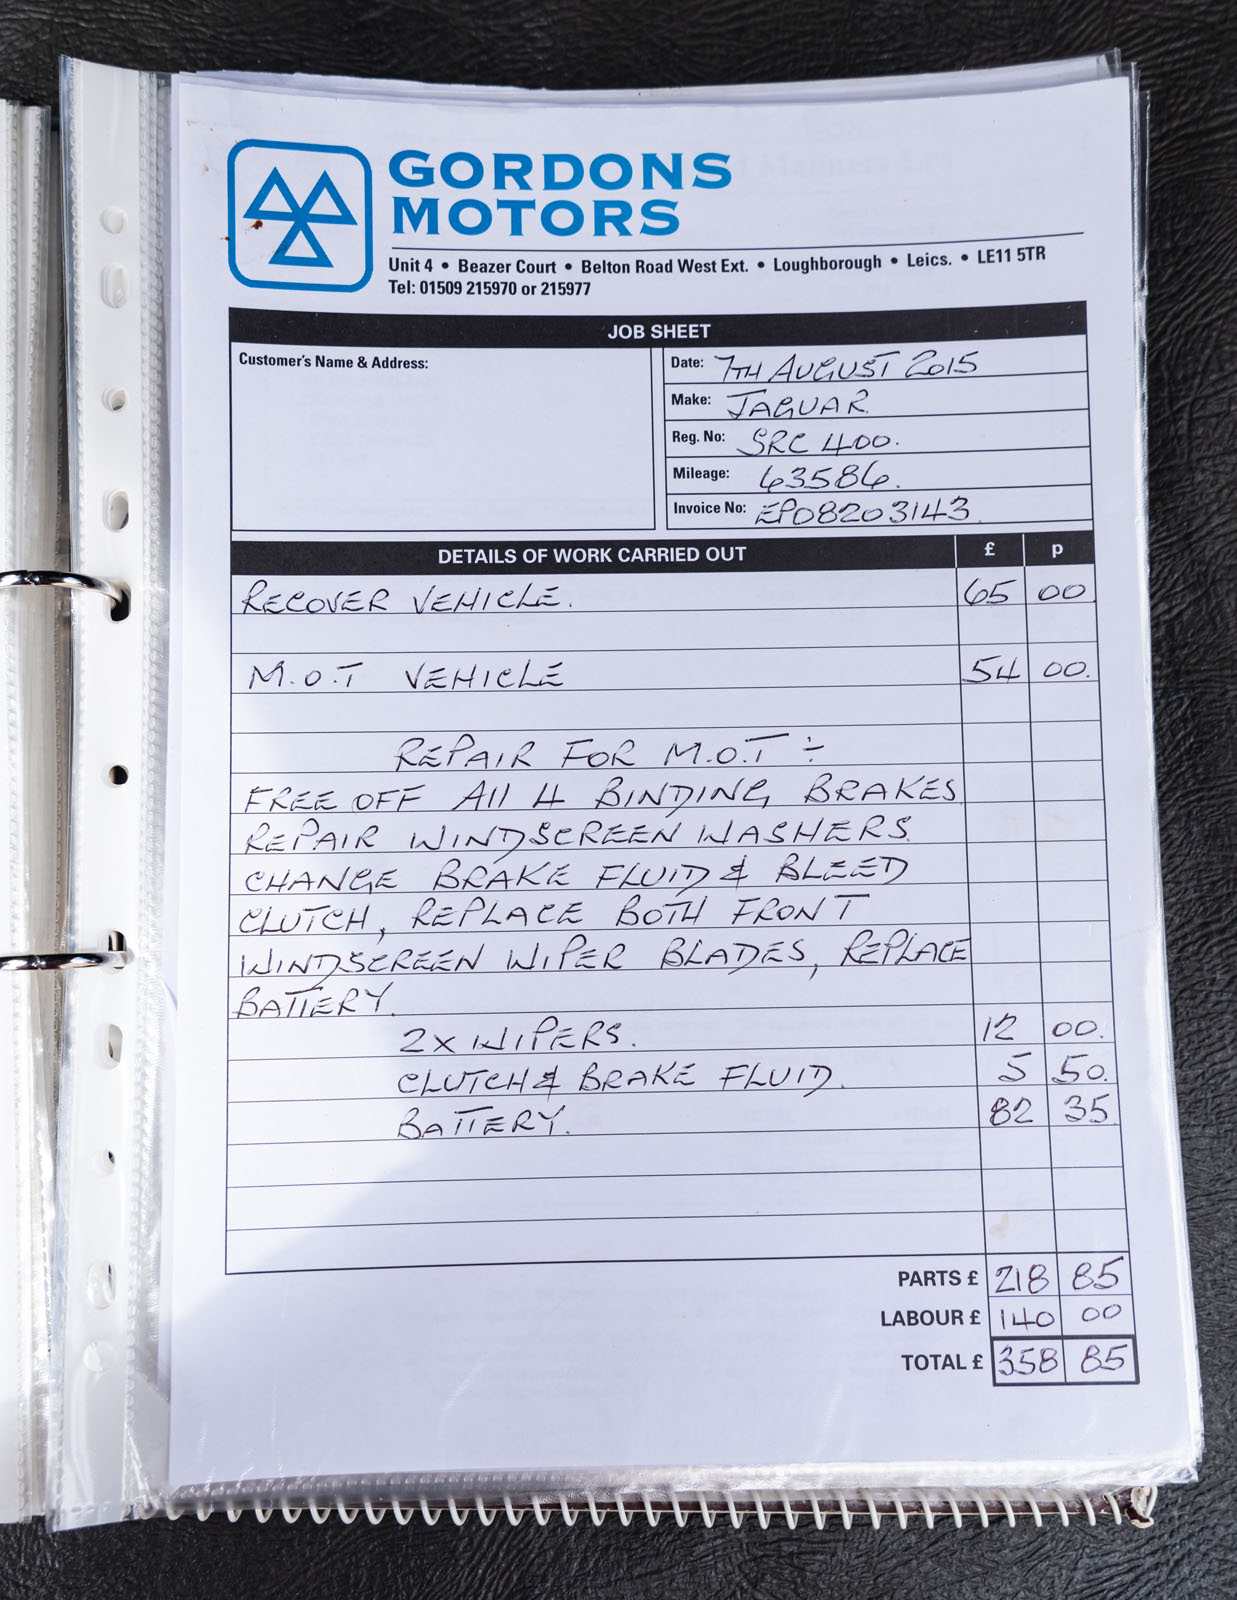 GORDONS
MOTORS
Unit 4 • Beazer Court • Belton Road West Ext. • Loughborough • Leics. • LE11 5TR
Tel: 01509 215970 or 215977
JOB SHEET
Customer's Name & Address:
Date: 7TH AUGUST 2015
Make: JAGUAR
Reg. No: SRC 400.
Mileage: 63586.
Invoice No: EP08203143
DETAILS OF WORK CARRIED OUT £ p
RECOVER VEHICLE. 65 00
M.O.T VEHICLE 54 00.
REPAIR FOR M.O.T ÷
FREE OFF All 4 BINDING BRAKES
REPAIR WINDSCREEN WASHERS
CHANGE BRAKE FLUID & BLEED
CLUTCH, REPLACE BOTH FRONT
WINDSCREEN WIPER BLADES, REPLACE
BATTERY.
2X WIPERS. 12 00.
CLUTCH & BRAKE FLUID. 5 50.
BATTERY. 82 35
PARTS £ 218 85
LABOUR £ 140 00
TOTAL £ 358 85